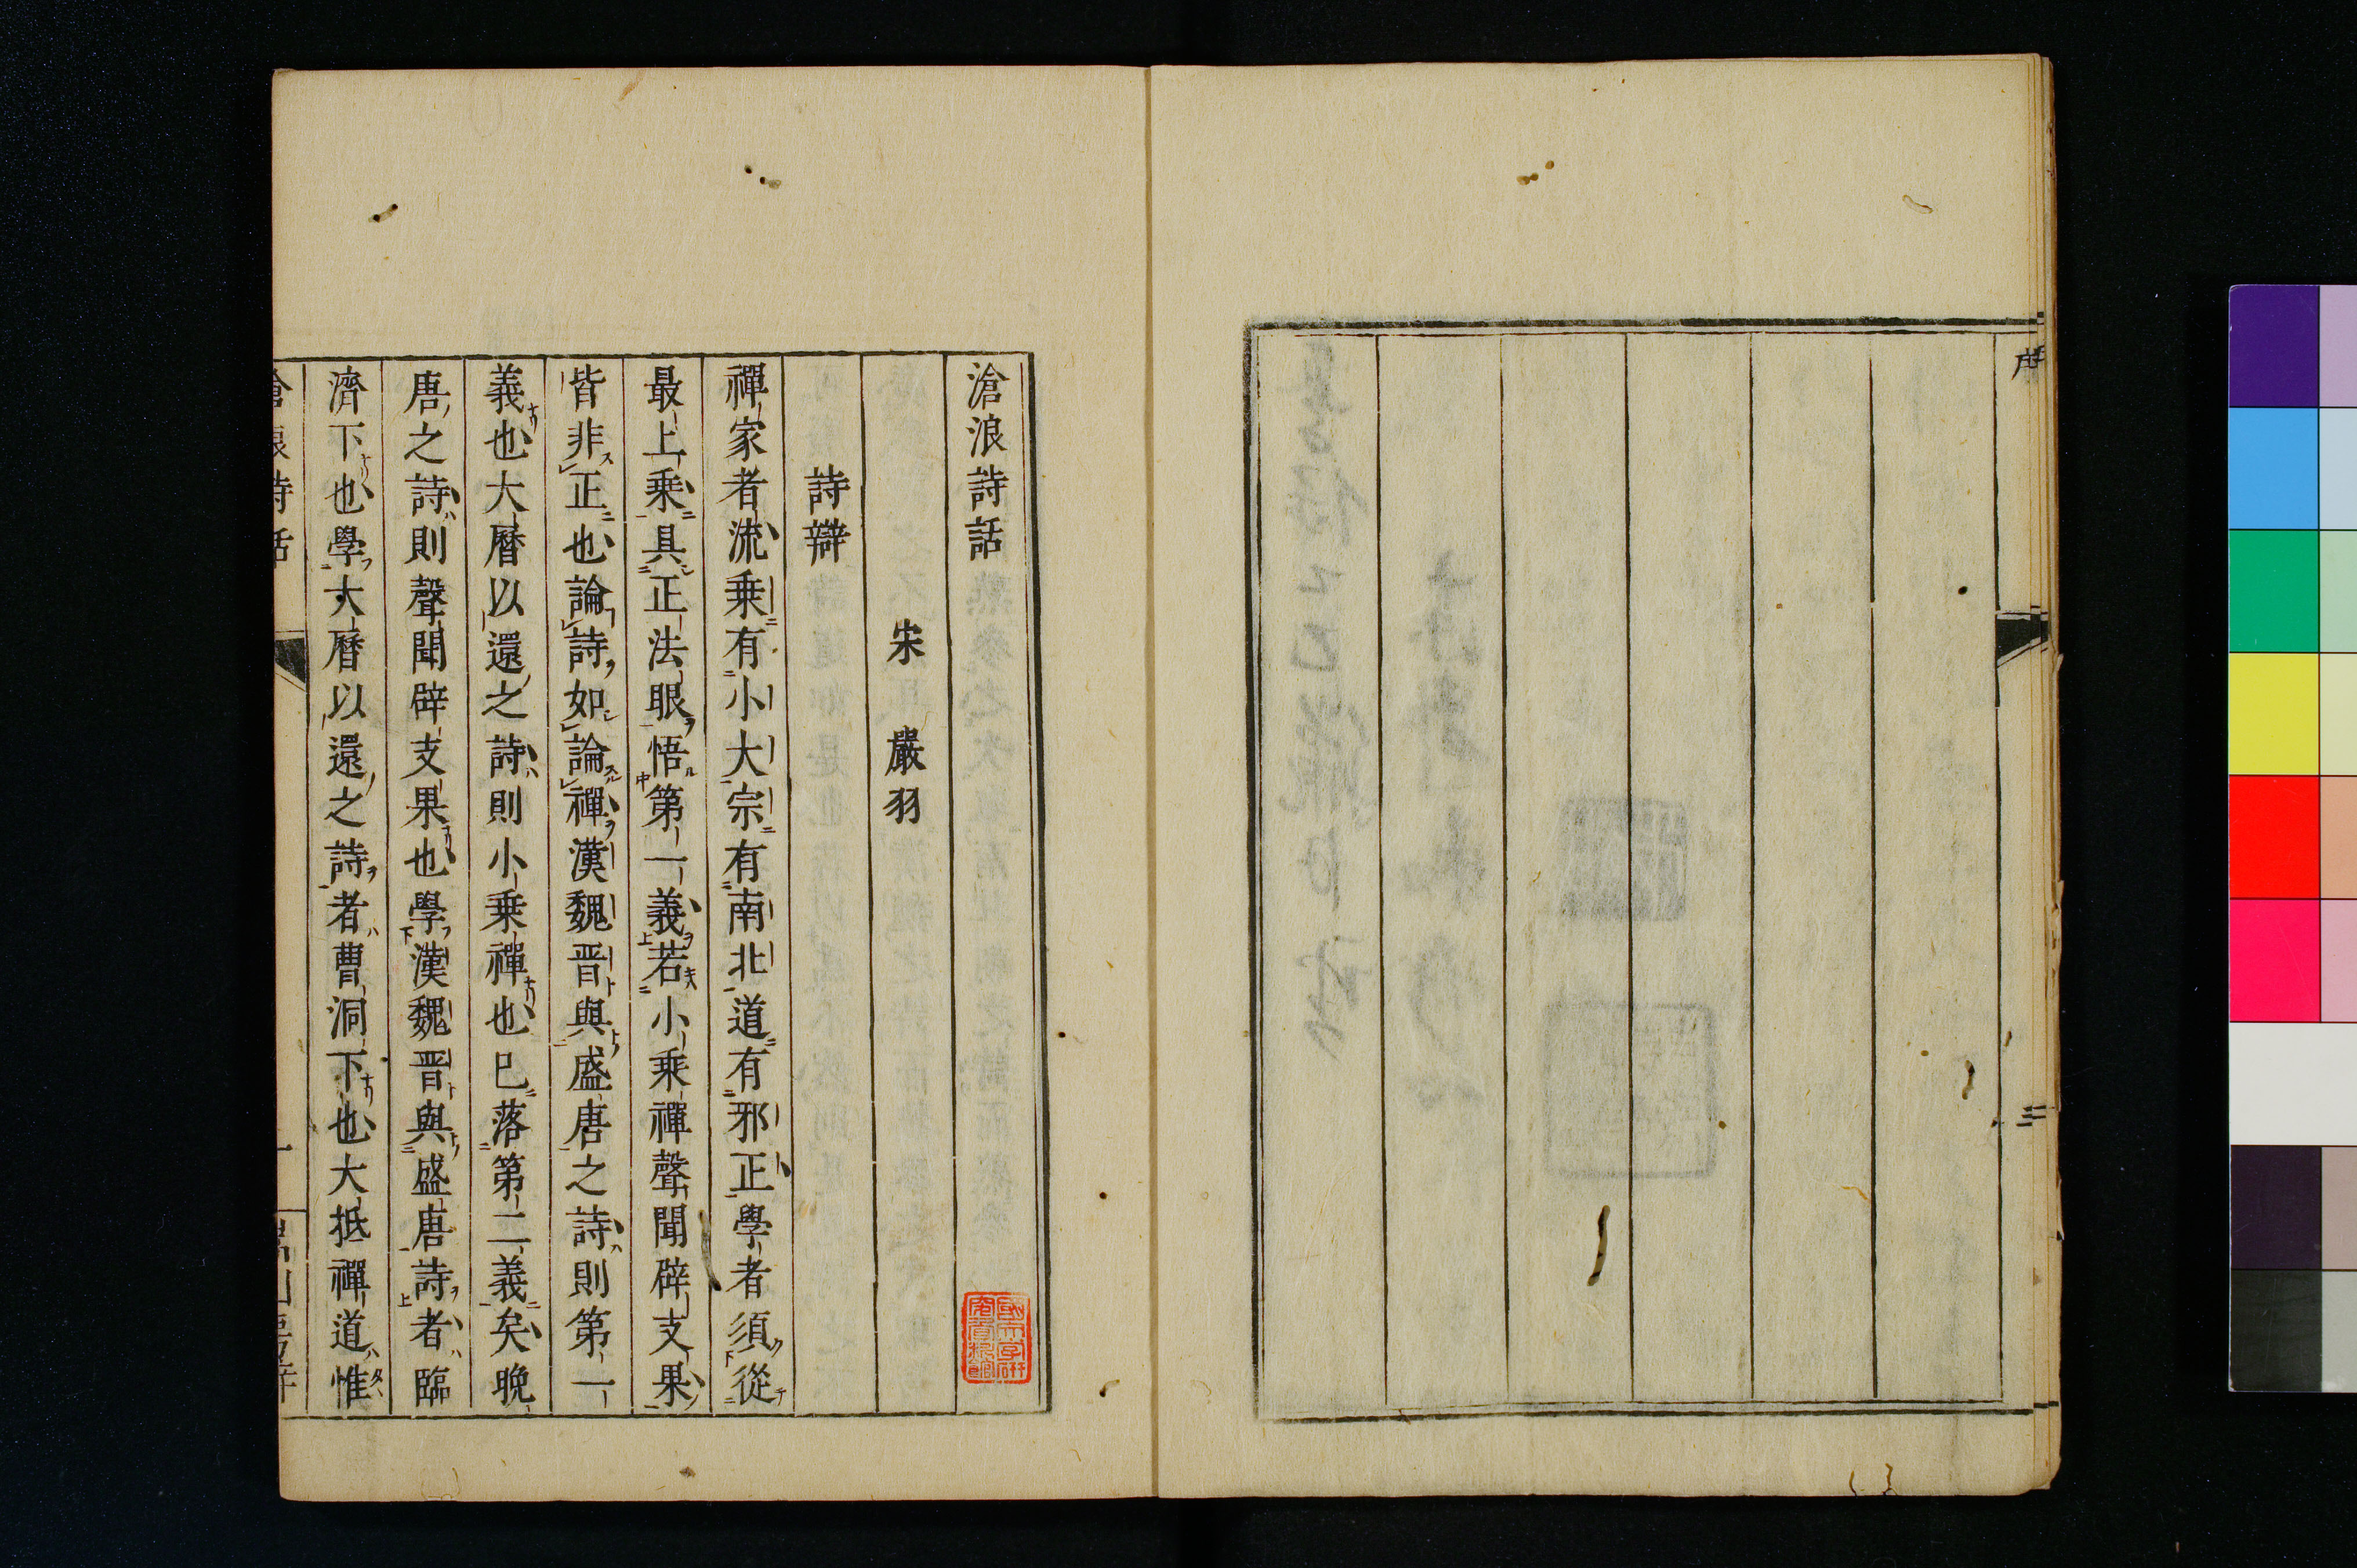 序
滄浪詩話
宋 嚴羽
詩辯
禪家者流乗有小大宗有南北道有邪正學者須從
最上乗具正法眼悟第一義若小乗禪聲聞辟支果
皆非正也論詩如論禪漢魏晋與盛唐之詩則第一
義也大曆以還之詩則小乗禪也已落第二義矣晚
唐之詩則聲聞辟支果也學漢魏晋與盛唐詩者臨
濟下也學大曆以還之詩者曹洞下也大抵禪道惟
滄浪詩話
一